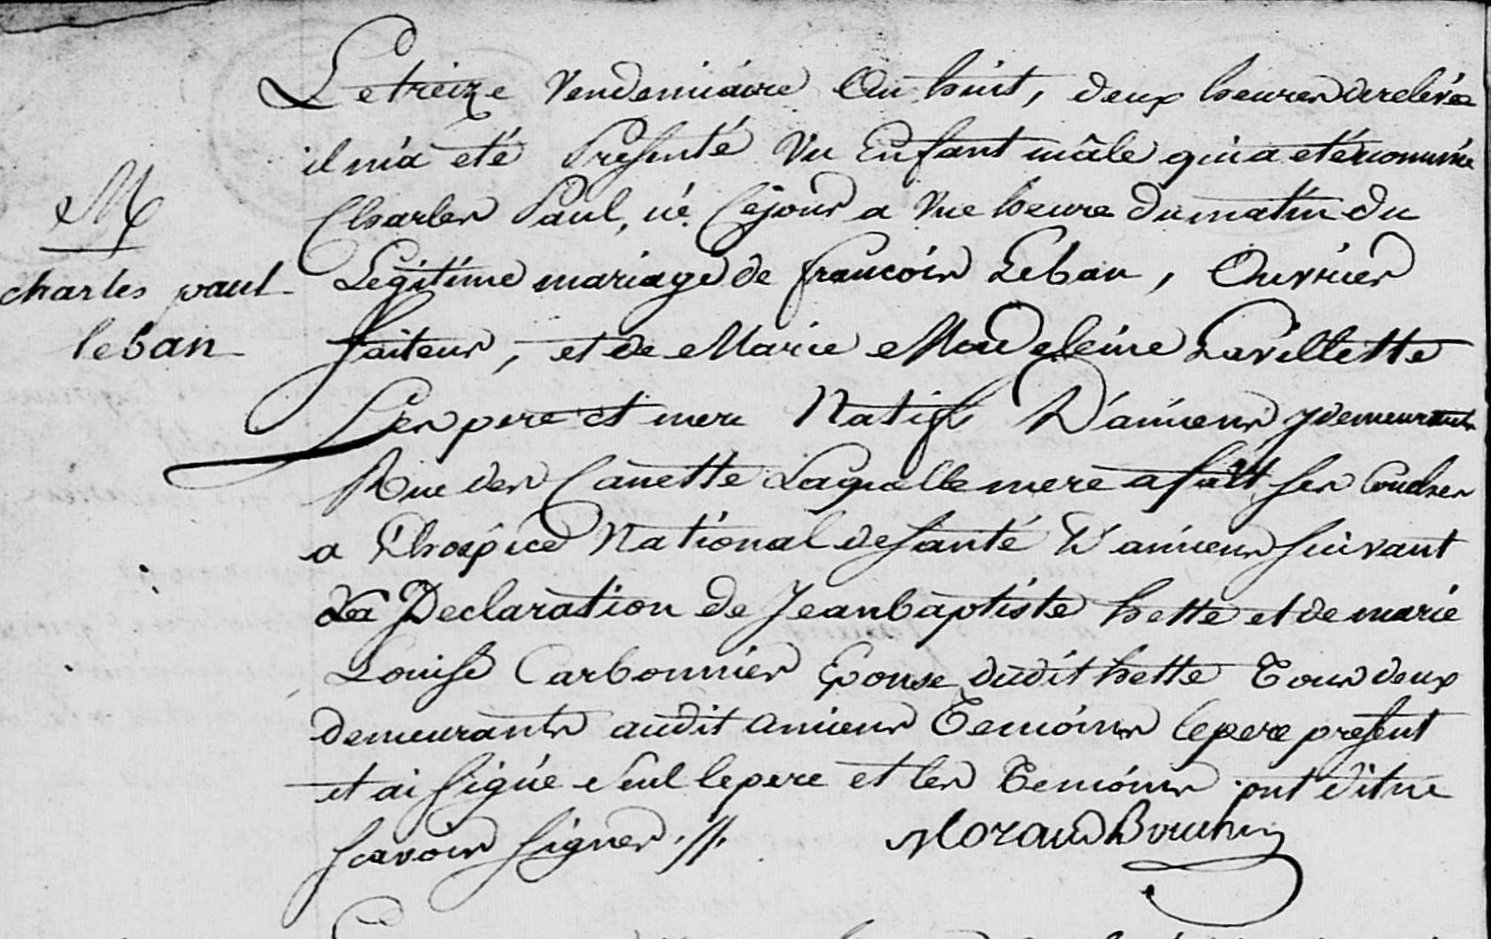 M
charles paul
leban
Le treize Vendemiaire An huit, deux heures de relevée
il m'a eté Presenté Un Enfant mâle qui a eté nommé
Charles Paul, né Ce jour a Une heure du matin du
Legitime mariage de françois Leban, Ouvrier
faiteur, et de Marie Madeleine Lavillette
Les pere et mere Natifs D'amiens y demeurants
Rue des Canette Laquelle mere a fait ses Couches
a L'hospice National de santé D'amiens suivant
La Declaration de Jean baptiste hette et de marie
Louise Carbonnier Epouse dudit hette Tous deux
demeurants audit amiens Temoins le pere present
et ai signé seul le pere et les Temoins ont dit ne
scavoir signer ./.
Morand